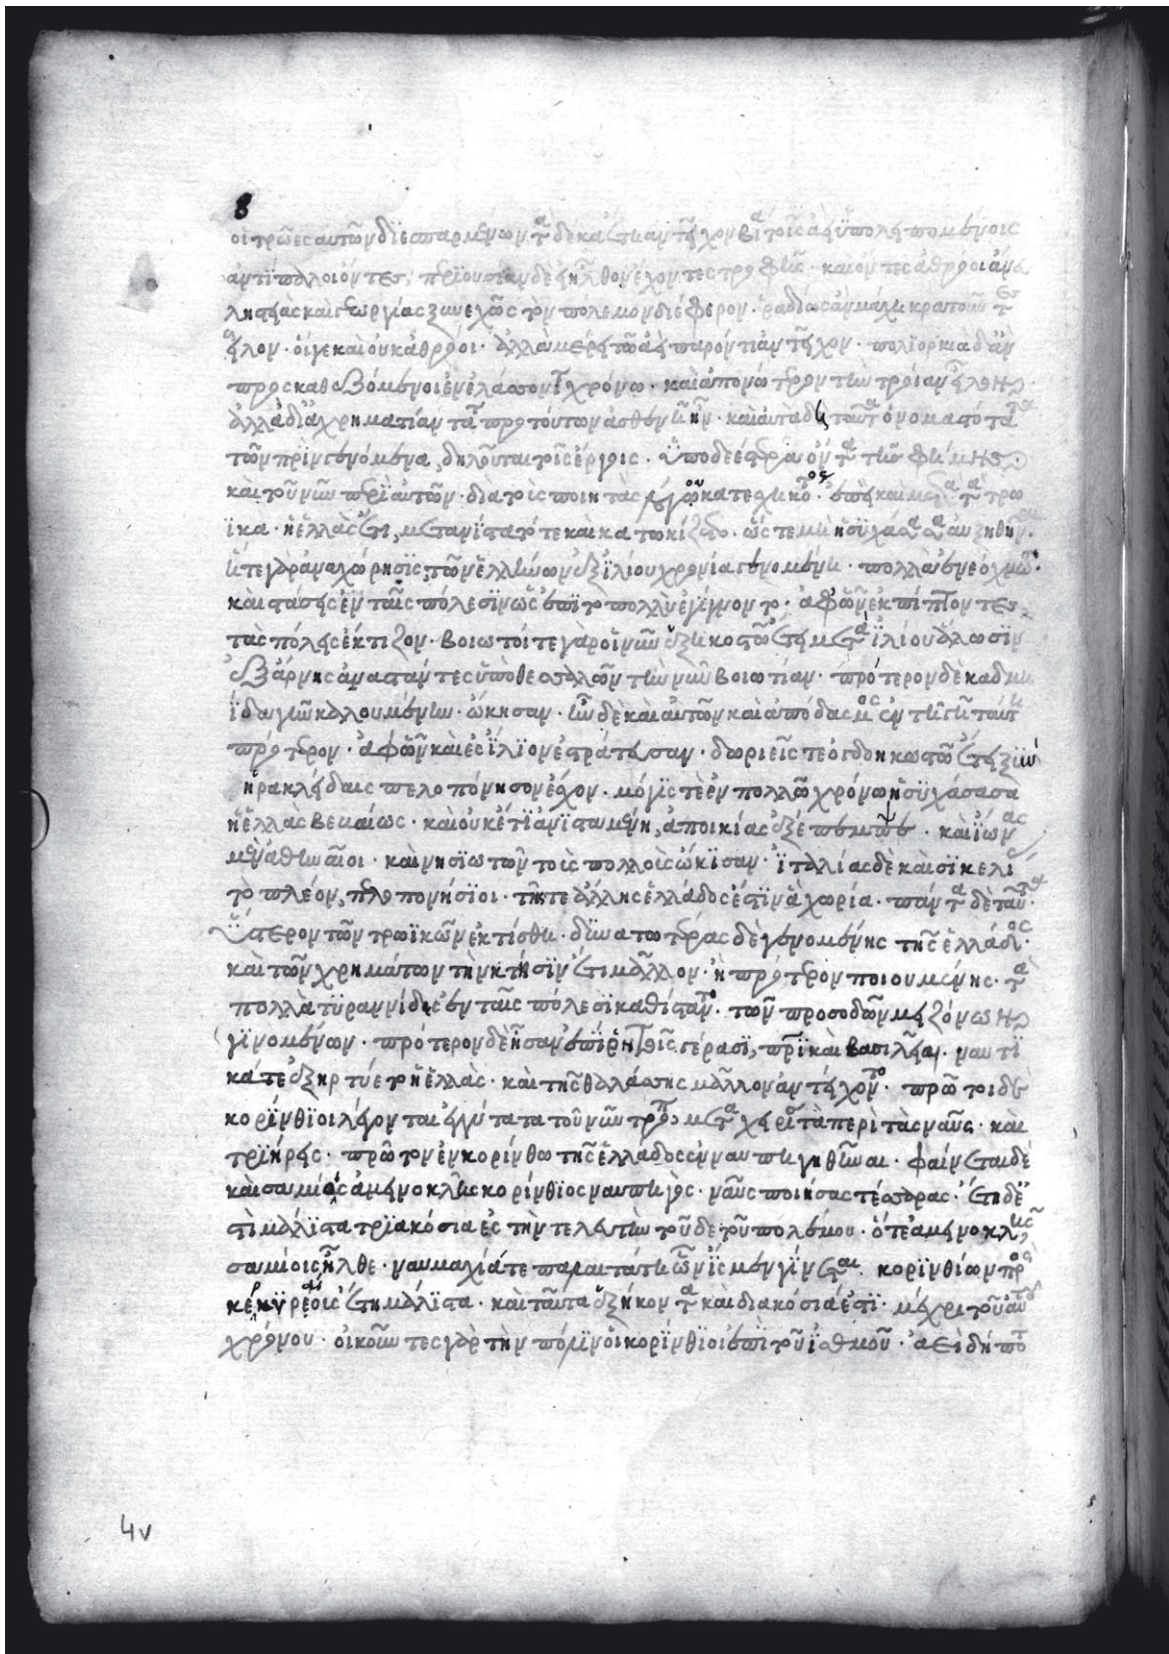 8
οἱ τρῶες αὐτῶν διεσπαρμένων τὰ δέκα ἔτη ἀντεῖχον βίᾳ τοῖς ἀεὶ ὑπολειπομένοις
ἀντίπαλοι ὄντες. περιουσίαν δὲ εἰ ἦλθον ἔχοντες τροφῆς. καὶ ὄντες ἀθρόοι ἄνευ
ληστείας καὶ γεωργίας ξυνεχῶς τὸν πόλεμον διέφερον. ῥαδίως ἂν μάχη κρατοῦντες
εἷλον. οἵ γε καὶ οὐκ ἀθρόοι. ἀλλὰ μέρει τῷ ἀεὶ παρόντι ἀντεῖχον. πολιορκία δ' ἂν
προσκαθεζόμενοι ἐν ἐλάσσονί τε χρόνω. καὶ ἀπονώτερον τὴν τροίαν εἷλον.
ἀλλὰ δι' ἀχρηματίαν τά τε πρὸ τούτων ἀσθενῆ ἦν. καὶ αὐτά δὴ ταῦτα ὀνομαστότατα
τῶν πρὶν γενόμενα, δηλοῦται τοῖς ἔργοις. ὑποδεέστερα ὄντα τῆς φήμης
καὶ τοῦ νῦν περὶ αὐτῶν διὰ τοὺς ποιητὰς λόγου κατεσχηκότος. ἐπεὶ καὶ μετὰ τὰ τρω
ϊκὰ ἡ ἑλλὰς ἔτι, μετανίστατό τε καὶ κατωκίζετο. ὥστε μὴ ἡσυχάσασα αὐξηθῆναι.
ἥ τε γὰρ ἀναχώρησις, τῶν ἑλλήνων ἐξ ἰλίου χρονία γενομένη. πολλὰ ἐνεόχμωσε.
καὶ στάσεις ἐν ταῖς πόλεσιν ὡς ἐπὶ τὸ πολλὺ ἐγίγνοντο. ἀφ' ὧν ἐκπίπτοντες,
τὰς πόλεις ἔκτιζον. βοιωτοί τε γὰρ οἱ νῦν ἑξηκοστῶ ἔτει μετὰ ἰλίου ἅλωσιν
ἐξ ἄρνης ἀναστάντες ὑπὸ θεσσαλῶν τὴν νῦν βοιωτίαν. πρότερον δὲ καδμη
ΐδα γῆν καλουμένην. ᾤκησαν. ἦν δὲ καὶ αὐτῶν καὶ ἀποδασμὸς ἐν τῆ γῆ ταύτη
πρότερον. ἀφ' ὧν καὶ ἐς ἴλιον ἐστράτευσαν. δωριεῖς τε ὀγδοηκοστῶ ἔτει ξὺν
ἡρακλείδαις πελοπόνησον ἔσχον. μόγις τε ἐν πολλῶ χρόνω ἡσυχάσασα
ἡ ἑλλὰς βεβαίως. καὶ οὐκέτι ἀνισταμένη, ἀποικίας ἐξέπεμψε. καὶ ἴωνας
μὲν ἀθηναῖοι. καὶ νησιωτῶν τοὺς πολλοὺς ὤκισαν. ἰταλίας δὲ καὶ σικελίας
τὸ πλέον, πελοπονήσιοι. τῆς τε ἄλλης ἑλλάδος ἔστιν ἃ χωρία. πάντα δὲ ταῦτα.
ὕστερον τῶν τρωϊκῶν ἐκτίσθη. δυνατωτέρας δὲ γενομένης τῆς ἑλλάδος.
καὶ τῶν χρημάτων τὴν κτῆσιν ἔτι μᾶλλον. ἢ πρότερον ποιουμένης. τὰ
πολλὰ τυραννίδες ἐν ταῖς πόλεσι καθίσταντο. τῶν προσόδων μειζόνων
γινομένων. πρότερον δὲ ἦσαν ἐπὶ ῥητοῖς γέρασι, πατρικαὶ βασιλεῖαι. ναυτι
κά τε ἐξηρτύετο ἡ ἑλλὰς. καὶ τῆς θαλάσσης μᾶλλον ἀντείχοντο. πρῶτοι δὲ
κορίνθιοι λέγονται ἐγγύτατα τοῦ νῦν τρόπου μεταχειρίσαι τὰ περὶ τὰς ναῦς. καὶ
τριήρεις. πρῶτον ἐν κορίνθω τῆς ἑλλάδος ἐνναυπηγηθῆναι. φαίνεται δὲ
καὶ σαμίοις ἀμεινοκλῆς κορίνθιος ναυπηγὸς. ναῦς ποιήσας τέσσαρας. ἔτη δέ ἐ
στι μάλιστα τριακόσια ἐς τὴν τελευτὴν τοῦδε τοῦ πολέμου. ὅτε ἀμεινοκλῆς
σαμίοις ἦλθε. ναυμαχία τε παλαιτάτη ὧν ἴσμεν γίνεται. κορινθίων πρὸς
κερκυραίους ἔτη μάλιστα. καὶ ταύτα ἑξήκοντα καὶ διακόσια ἐστὶ. μέχρι τοῦ αὐτοῦ
χρόνου. οἰκοῦντες γὰρ τὴν πόλιν οἱ κορίνθιοι ἐπὶ τοῦ ἰσθμοῦ. ἀεὶ δή ποτε
4v